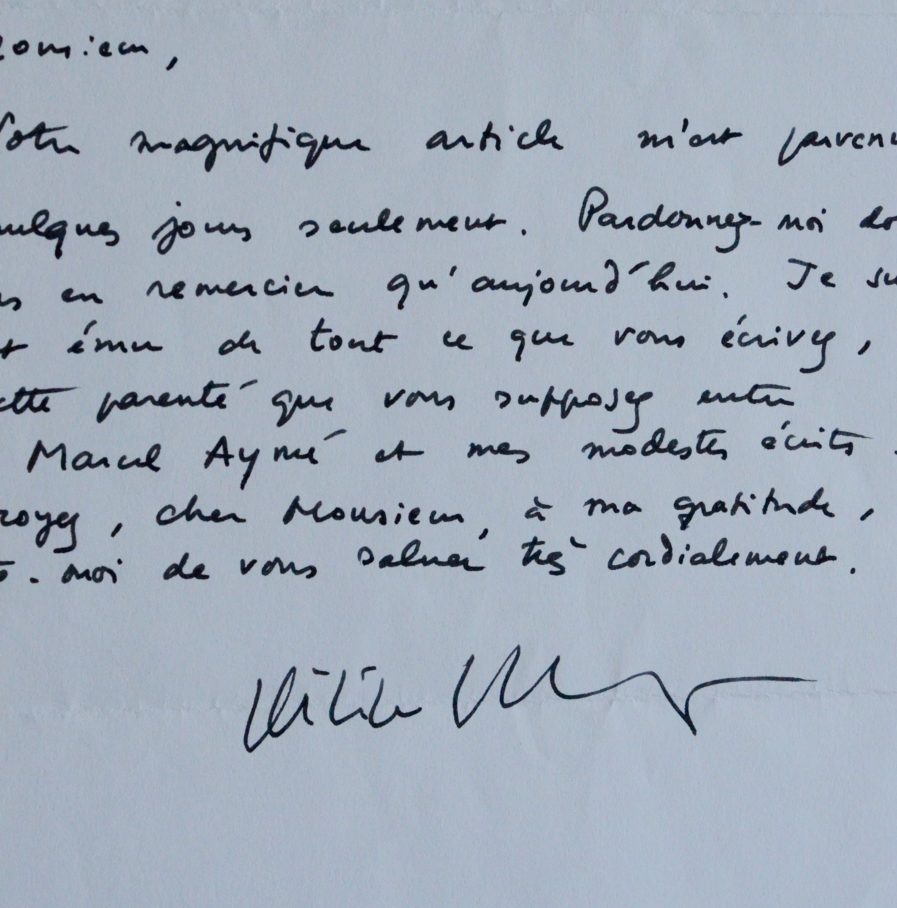 onsieur,
Votre magnifique article m'est parvenu
quelques jours seulement. Pardonnez-moi do
us en remercier qu'aujourd'hui. Je su
t ému de tout ce que vous écrivez,
ette parenté que vous supposez entre
Marcel Aymé et mes modestes écrits.
royez, cher Monsieur, à ma gratitude,
moi de vous saluer très cordialement.